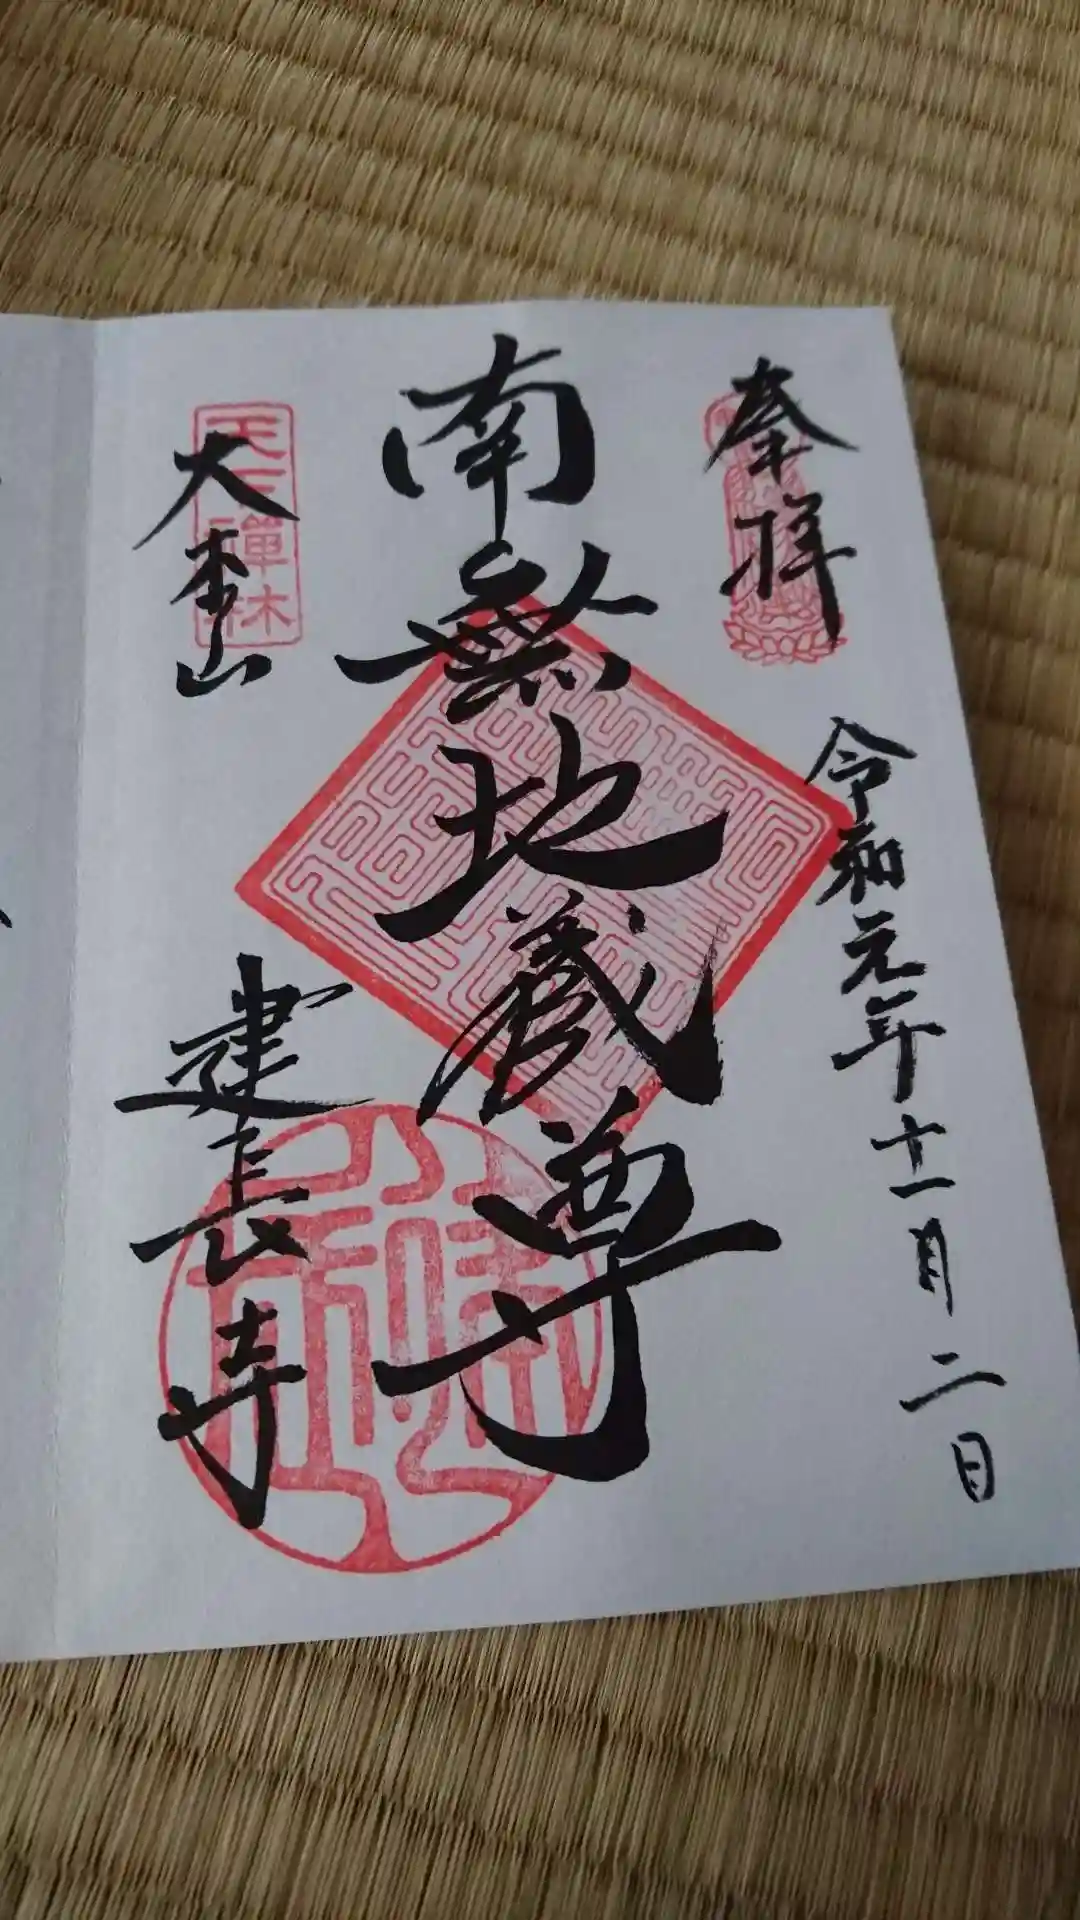 奉拝
令和元年十一月二日
南無地蔵尊
大本山
建長寺
天下禅林